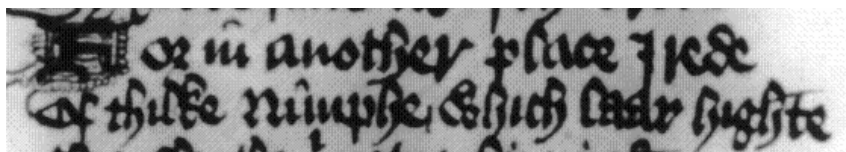 For in another place I rede
Of thilke Nimphe which laar highte